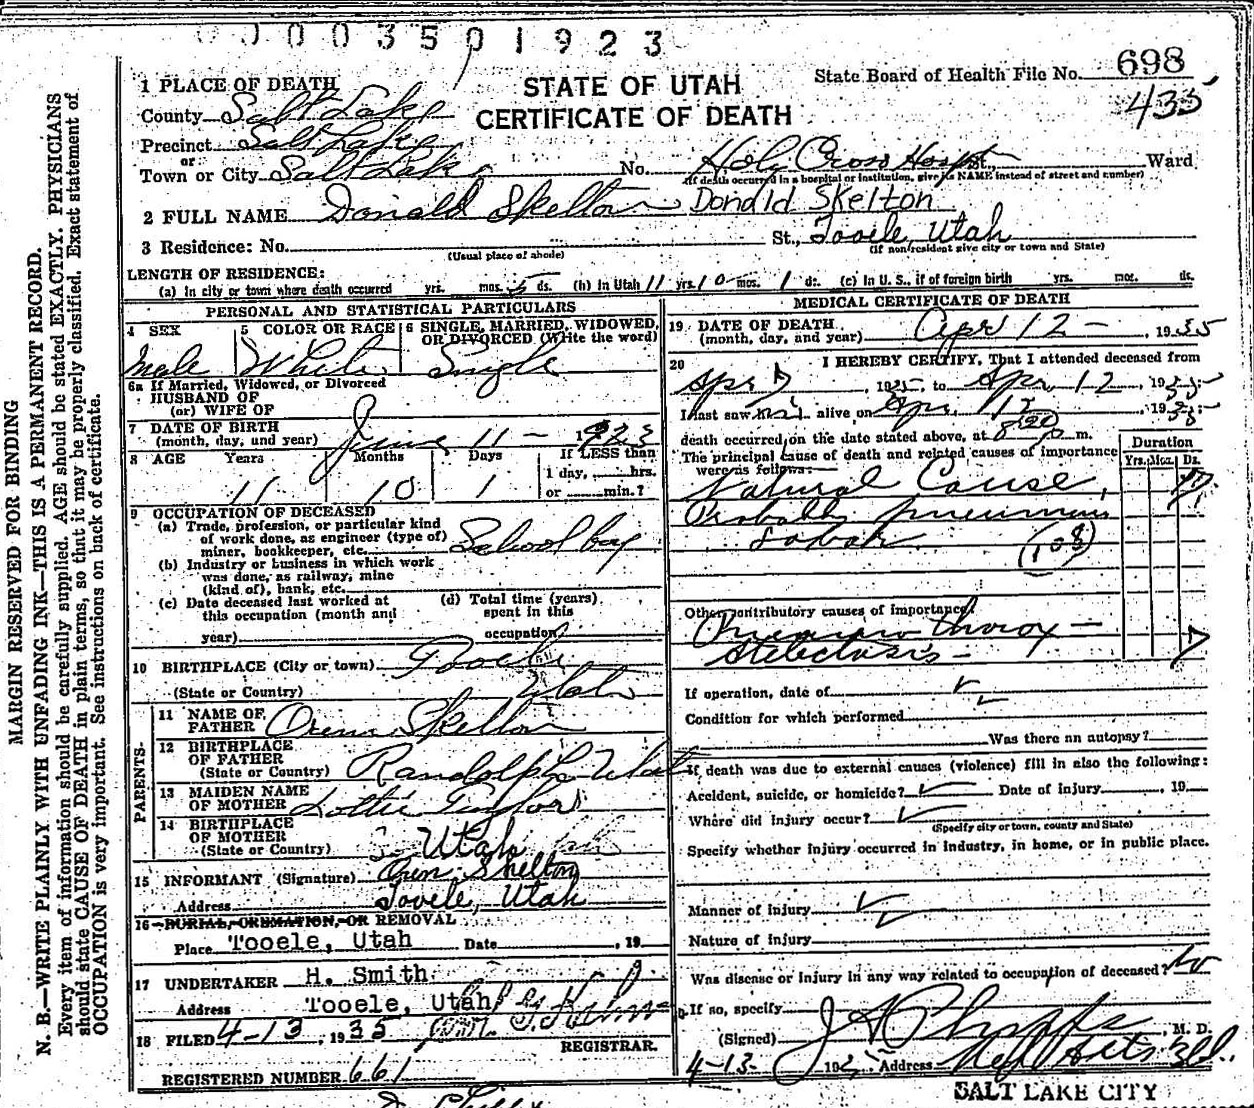 0003501923
1 PLACE OF DEATH
STATE OF UTAH
CERTIFICATE OF DEATH
State Board of Health File No. 698
435
County Salt Lake
Precinct Salt Lake
or
Town or City Salt Lake No. Holy Cross Hosp St. Ward
(If death occurred in a hospital or institution, give its NAME instead of street and number)
2 FULL NAME Donald Skelton Donald Skelton
3 Residence: No. St., Tooele, Utah
(Usual place of abode) (If non-resident give city or town and State)
LENGTH OF RESIDENCE:
(a) In city or town where death occurred yrs. mos. 5 ds. (b) In Utah 11 yrs. 10 mos. 1 ds. (c) In U. S., if of foreign birth yrs. mos. ds.
PERSONAL AND STATISTICAL PARTICULARS
4 SEX 5 COLOR OR RACE 6 SINGLE, MARRIED, WIDOWED, OR DIVORCED (Write the word)
Male White Single
6a If Married, Widowed, or Divorced
HUSBAND OF
(or) WIFE OF
7 DATE OF BIRTH
(month, day, and year) June 11 - 1923
8 AGE Years Months Days If LESS than
1 day, hrs.
or min.?
11 10 1
9 OCCUPATION OF DECEASED
(a) Trade, profession, or particular kind
of work done, as engineer (type of)
miner, bookkeeper, etc. School boy
(b) Industry or business in which work
was done, as railway, mine
(kind of), bank, etc.
(c) Date deceased last worked at
this occupation (month and
year)
(d) Total time (years)
spent in this
occupation
10 BIRTHPLACE (City or town) Tooele
(State or Country) Utah
PARENTS
11 NAME OF
FATHER Oren Skelton
12 BIRTHPLACE
OF FATHER
(State or Country) Randolph Utah
13 MAIDEN NAME
OF MOTHER Lottie Taylor
14 BIRTHPLACE
OF MOTHER
(State or Country) Utah
15 INFORMANT (Signature) Oren Skelton
Address Tooele, Utah
16 BURIAL, CREMATION, OR REMOVAL
Place Tooele, Utah Date , 19
17 UNDERTAKER H. Smith
Address Tooele, Utah
18 FILED 4-13, 1935
REGISTRAR.
REGISTERED NUMBER 661
MEDICAL CERTIFICATE OF DEATH
19 DATE OF DEATH
(month, day, and year) Apr 12 - 1935
20 I HEREBY CERTIFY, That I attended deceased from
Apr 7, 1935 to Apr 12, 1935
I last saw him alive on Apr. 12 1935
death occurred on the date stated above, at 8 20 p m.
The principal cause of death and related causes of importance
were as follows:
Duration
Yrs. Mos. Ds.
Natural Cause,
Probably pneumonia
Lobar (108)
Other contributory causes of importance:
Pneumo thorax -
Atelectasis - 7
If operation, date of
Condition for which performed
Was there an autopsy?
If death was due to external causes (violence) fill in also the following:
Accident, suicide, or homicide? Date of injury , 19
Where did injury occur?
(Specify city or town, county and State)
Specify whether injury occurred in industry, in home, or in public place.
Manner of injury
Nature of injury
Was disease or injury in any way related to occupation of deceased? No
If so, specify
(Signed) J A Phipps, M. D.
4-13- 193 Address Med Arts Bld.
SALT LAKE CITY
MARGIN RESERVED FOR BINDING
N. B.—WRITE PLAINLY WITH UNFADING INK—THIS IS A PERMANENT RECORD.
Every item of information should be carefully supplied. AGE should be stated EXACTLY. PHYSICIANS
should state CAUSE OF DEATH in plain terms, so that it may be properly classified. Exact statement of
OCCUPATION is very important. See instructions on back of certificate.